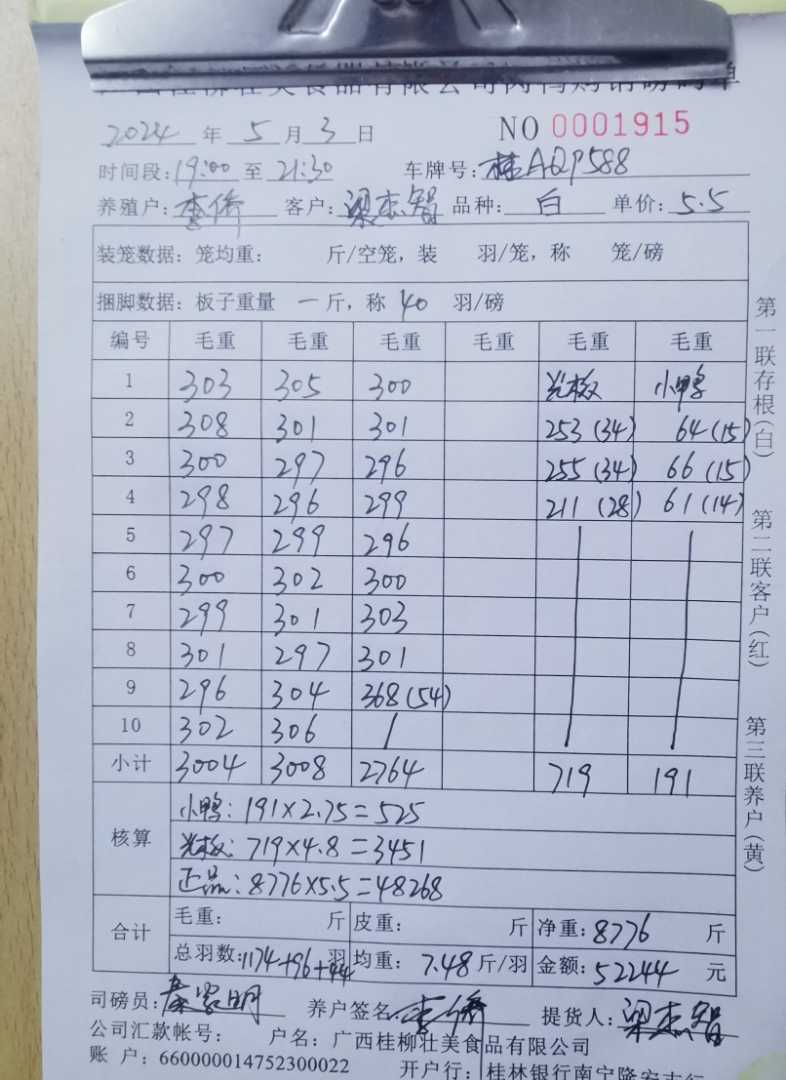 2024 年 5 月 3 日 NO 0001915
时间段: 19:00 至 21:30 车牌号: 桂AQP588
养殖户: 李侨 客户: 梁杰智 品种: 白 单价: 5.5
装笼数据: 笼均重: 斤/空笼, 装 羽/笼, 称 笼/磅
捆脚数据: 板子重量 一 斤, 称 40 羽/磅
编号 毛重 毛重 毛重 毛重 毛重 毛重
1 303 305 300 光板 小鸭
2 308 301 301 253 (34) 64 (15)
3 300 297 296 255 (34) 66 (15)
4 298 296 299 211 (28) 61 (14)
5 297 299 296
6 300 302 300
7 299 301 303
8 301 297 301
9 296 304 368 (54)
10 302 306 /
小计 3004 3008 2764 719 191
核算
小鸭: 191×2.75=525
光板: 719×4.8=3451
正品: 8776×5.5=48268
合计 毛重: 斤 皮重: 斤 净重: 8776 斤
总羽数: 1174+96+44 羽 均重: 7.48 斤/羽 金额: 52244 元
司磅员: 养户签名: 李侨 提货人: 梁杰智
公司汇款帐号: 户名: 广西桂柳壮美食品有限公司
账 户: 660000014752300022 开户行: 桂林银行南宁隆安支行
第一联存根(白)
第二联客户(红)
第三联养户(黄)